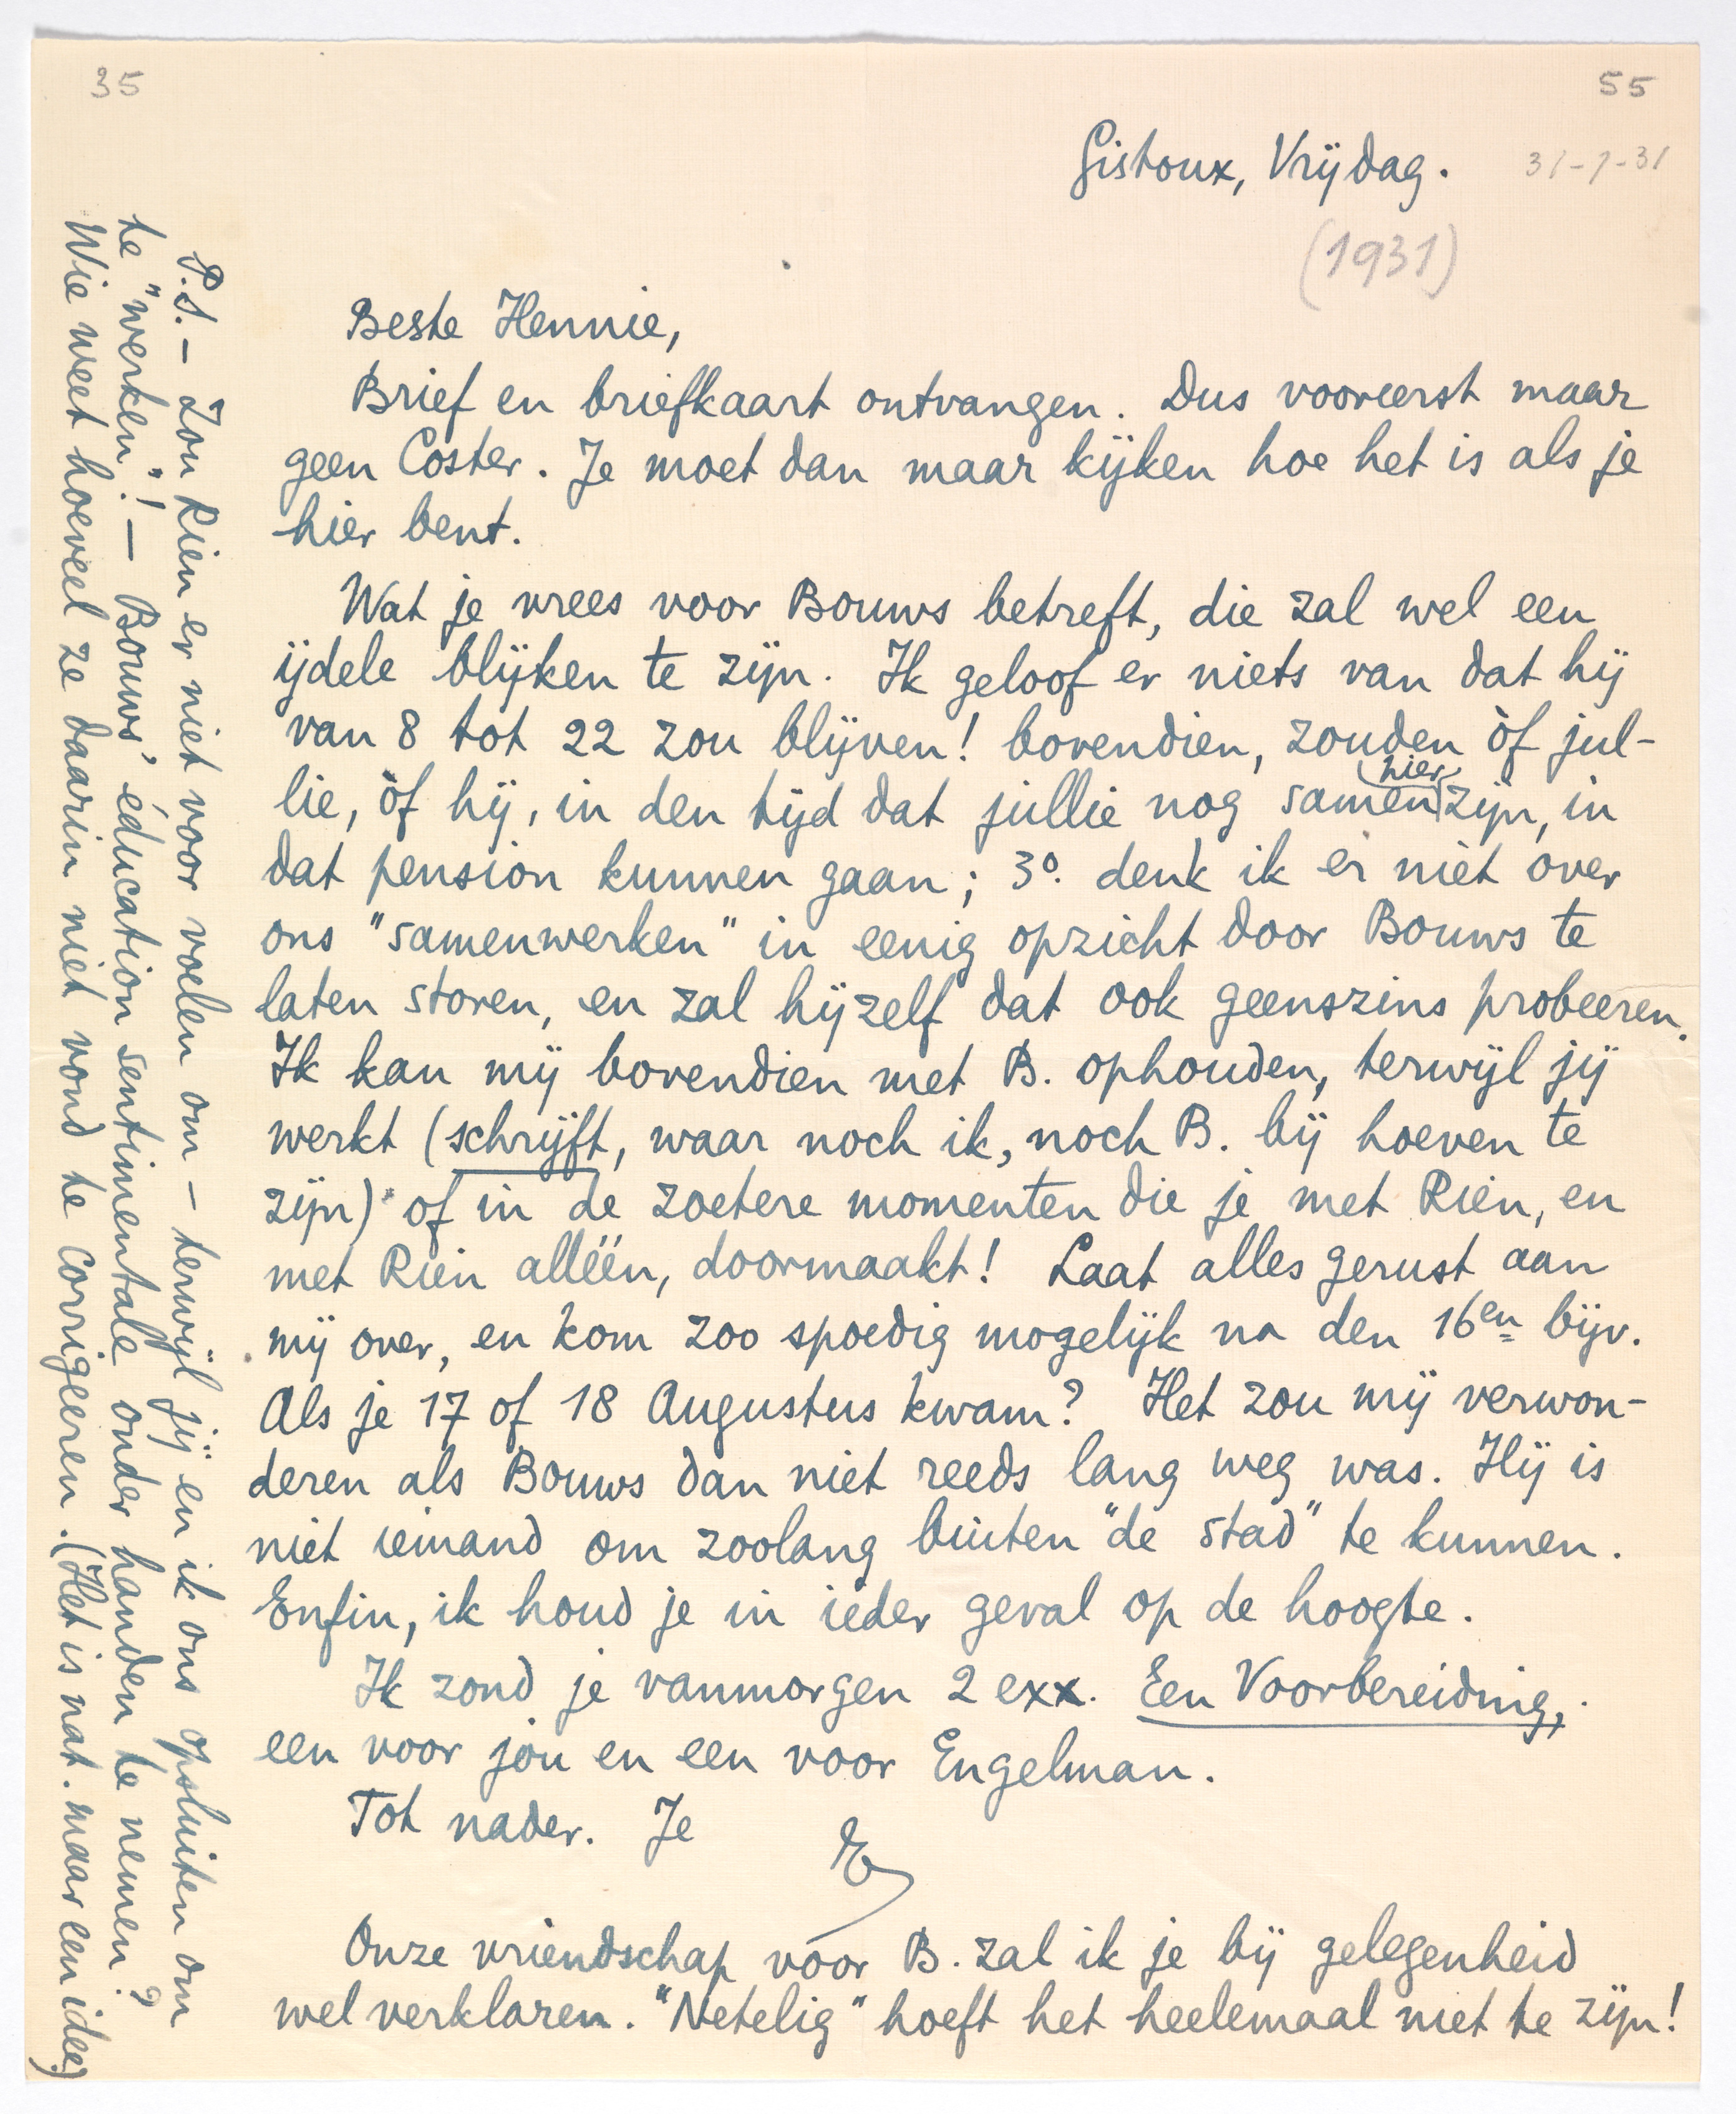 35
55
Gistoux, Vrijdag.
31-7-31
(1931)
Beste Hennie,
Brief en briefkaart ontvangen. Dus vooreerst maar
geen Coster. Je moet dan maar kijken hoe het is als je
hier bent.
Wat je vrees voor Bouws betreft, die zal wel een
ijdele blijken te zijn. Ik geloof er niets van dat hij
van 8 tot 22 zou blijven! bovendien, zouden òf jul-
lie, òf hij, in den tijd dat jullie nog samen hier zijn, in
dat pension kunnen gaan; 3º. denk ik er niet over
ons "samenwerken" in eenig opzicht door Bouws te
laten storen, en zal hijzelf dat ook geenszins probeeren.
Ik kan mij bovendien met B. ophouden, terwijl jij
werkt (schrijft, waar noch ik, noch B. bij hoeven te
zijn) of in de zoetere momenten die je met Rien, en
met Rien alléén, doormaakt! Laat alles gerust aan
mij over, en kom zoo spoedig mogelijk na den 16en bijv.
Als je 17 of 18 Augustus kwam? Het zou mij verwon-
deren als Bouws dan niet reeds lang weg was. Hij is
niet iemand om zoolang buiten "de stad" te kunnen.
Enfin, ik houd je in ieder geval op de hoogte.
Ik zond je vanmorgen 2 exx. Een Voorbereiding,
een voor jou en een voor Engelman.
Tot nader. Je
E
Onze vriendschap voor B. zal ik je bij gelegenheid
wel verklaren. "Netelig" hoeft het heelemaal niet te zijn!
P.S. — Zou Rien er niet voor voelen om — terwijl jij en ik ons opsluiten om
te "werken"! — Bouws' éducation sentimentale onder handen te nemen?
Wie weet hoeveel ze daarin niet vond te corrigeeren. (Het is nat. maar een idee)